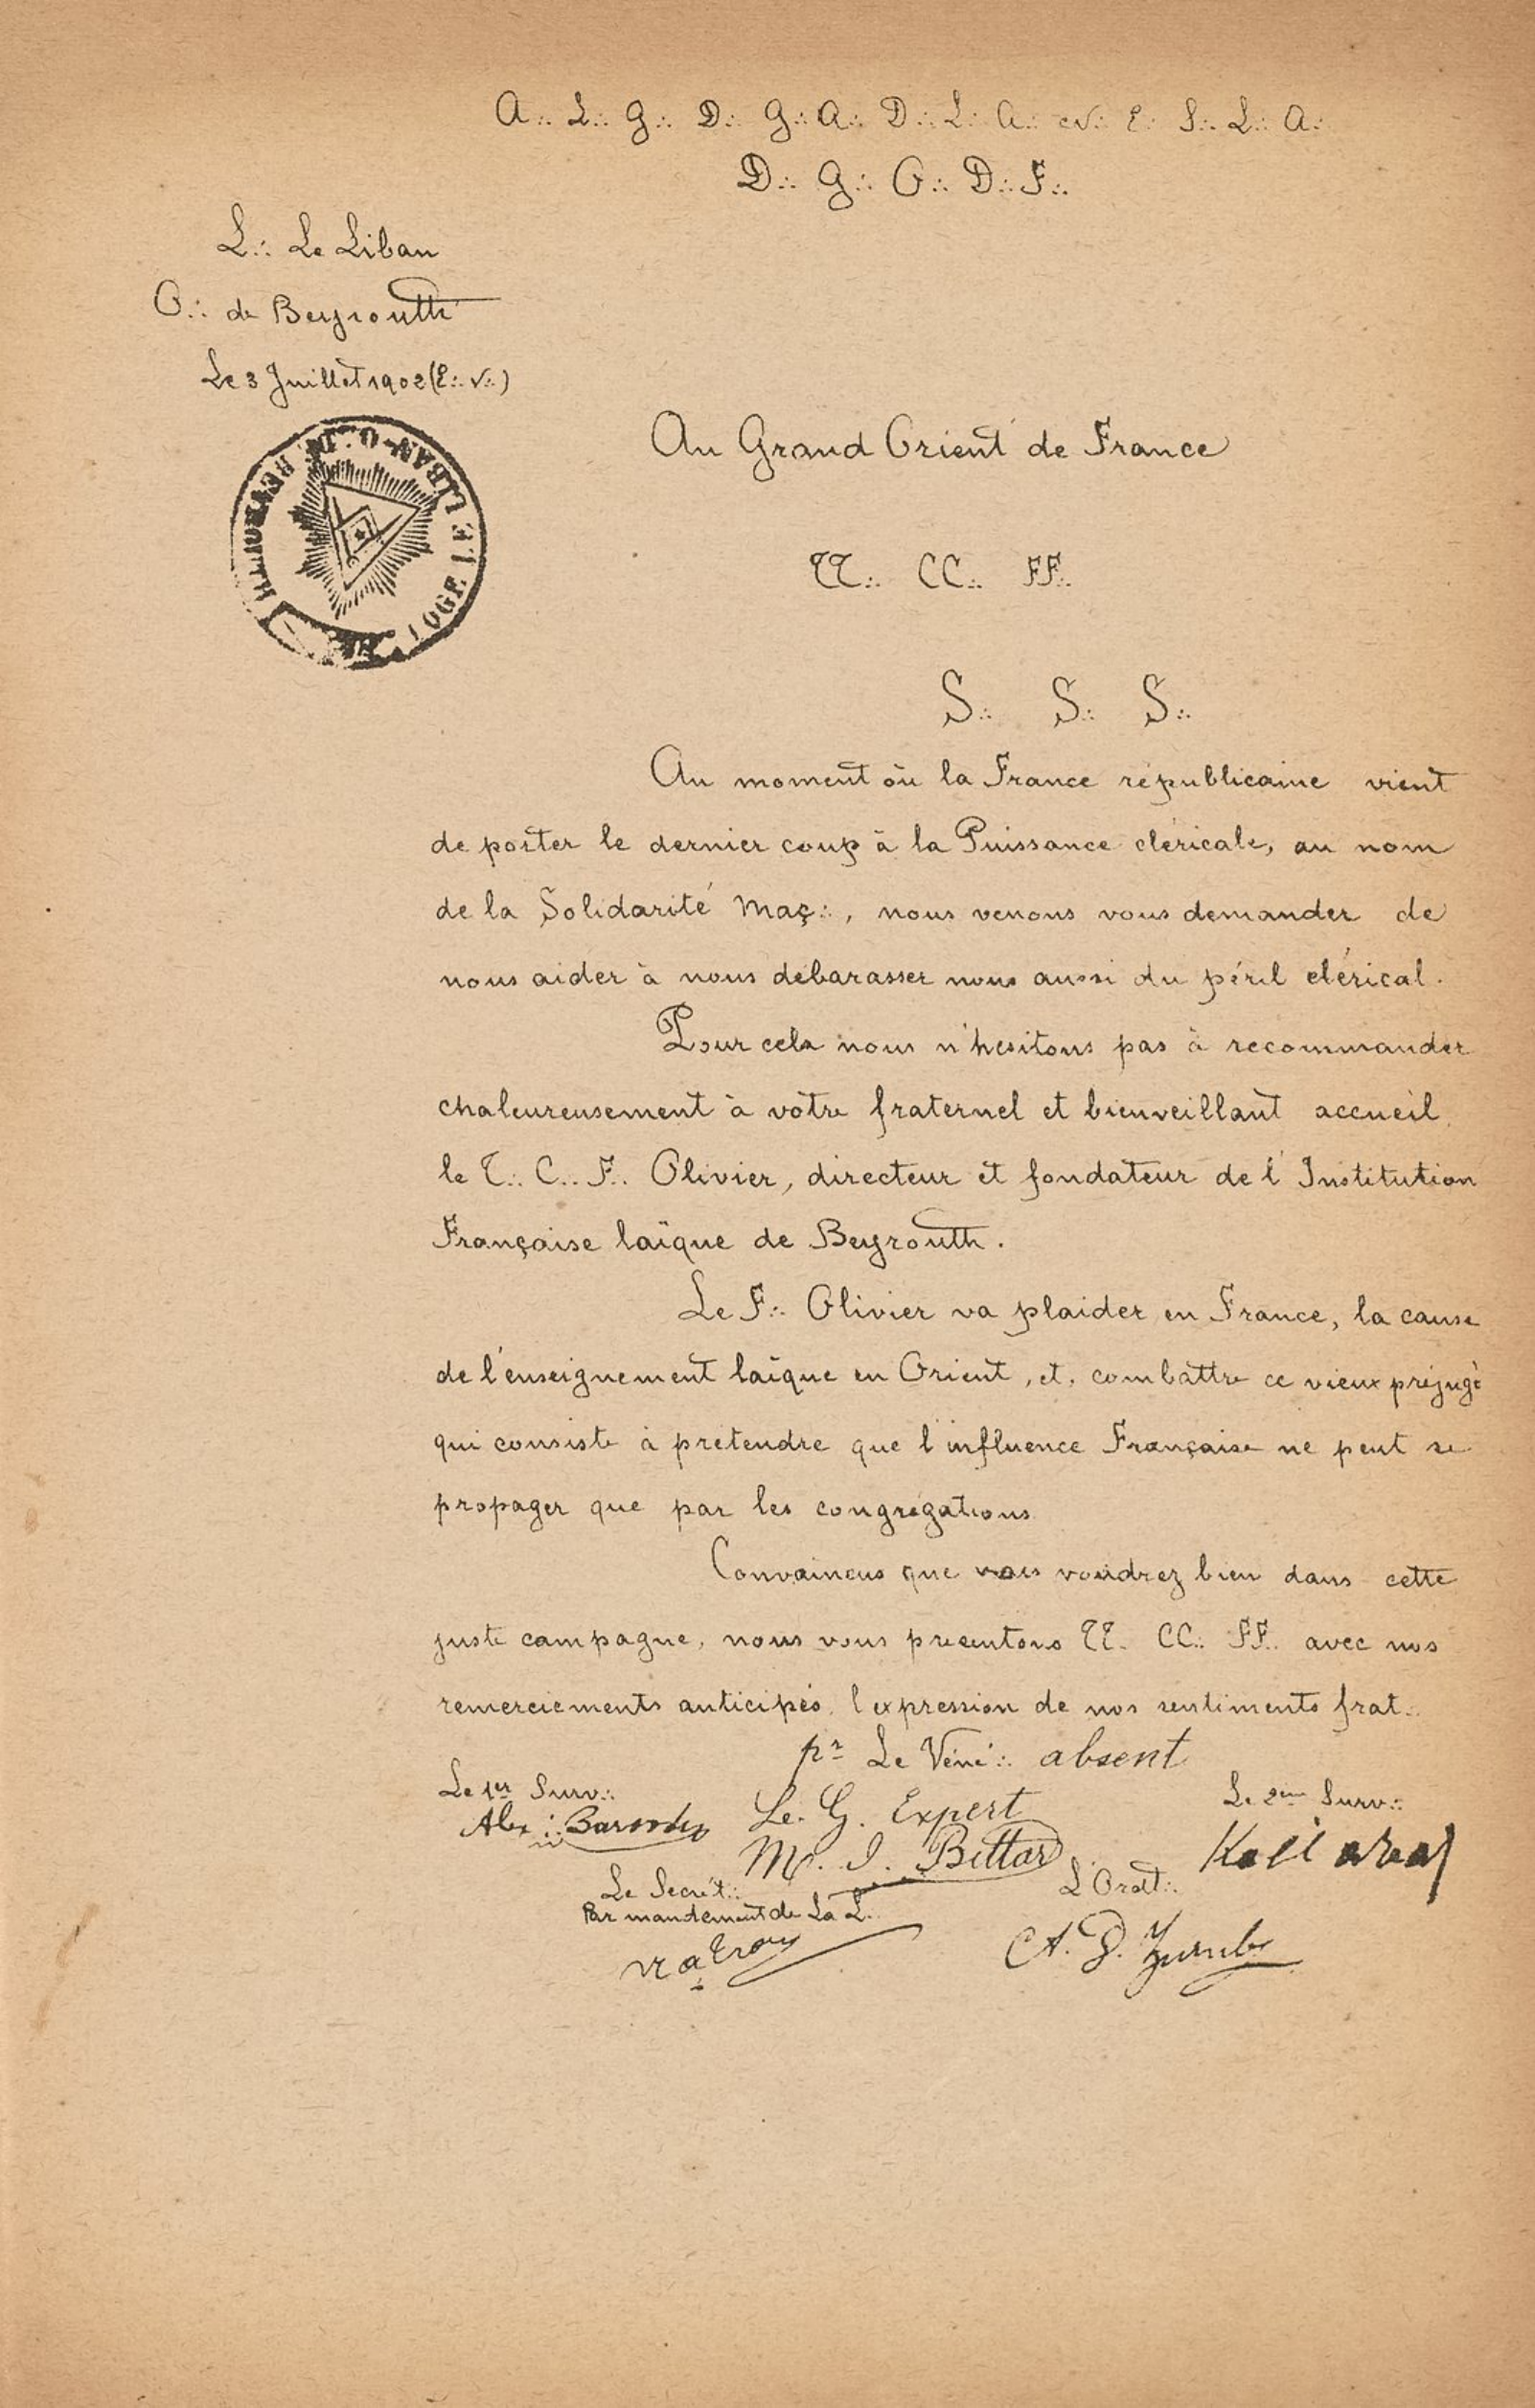 A∴ L∴ G∴ D∴ G∴ A∴ D∴ L∴ A∴ et N∴ E∴ S∴ L∴ A∴
D∴ G∴ O∴ D∴ F∴
L∴ Le Liban
O∴ de Beyrouth
Le 3 Juillet 1902 (E∴ V∴)
LOGE LE LIBAN - O∴ DE BEYROUTH
Au Grand Orient de France
TT∴ CC∴ FF∴
S∴ S∴ S∴
Au moment où la France républicaine vient
de porter le dernier coup à la Puissance cléricale, au nom
de la Solidarité Maç∴, nous venons vous demander de
nous aider à nous débarasser nous aussi du péril clérical.
Pour cela nous n'hesitons pas à recommander
chaleureusement à vôtre fraternel et bienveillant accueil
le T∴ C∴ F∴ Olivier, directeur et fondateur de l'Institution
Française laïque de Beyrouth.
Le F∴ Olivier va plaider en France, la cause
de l'enseignement laïque en Orient, et, combattre ce vieux préjugé
qui consiste à prétendre que l'influence Française ne peut se
propager que par les congrégations
Convaincus que vous voudrez bien dans cette
juste campagne, nous vous présentons TT∴ CC∴ FF∴ avec nos
remerciements anticipés, l'expression de nos sentiments frat∴
pr Le Véné∴ absent
Le 1er Surv∴
Le G. Expert
Le 2em Surv∴
Alex
M. I. Bittar
Le Secrét∴
Par mandement de La L∴
L'Orat∴